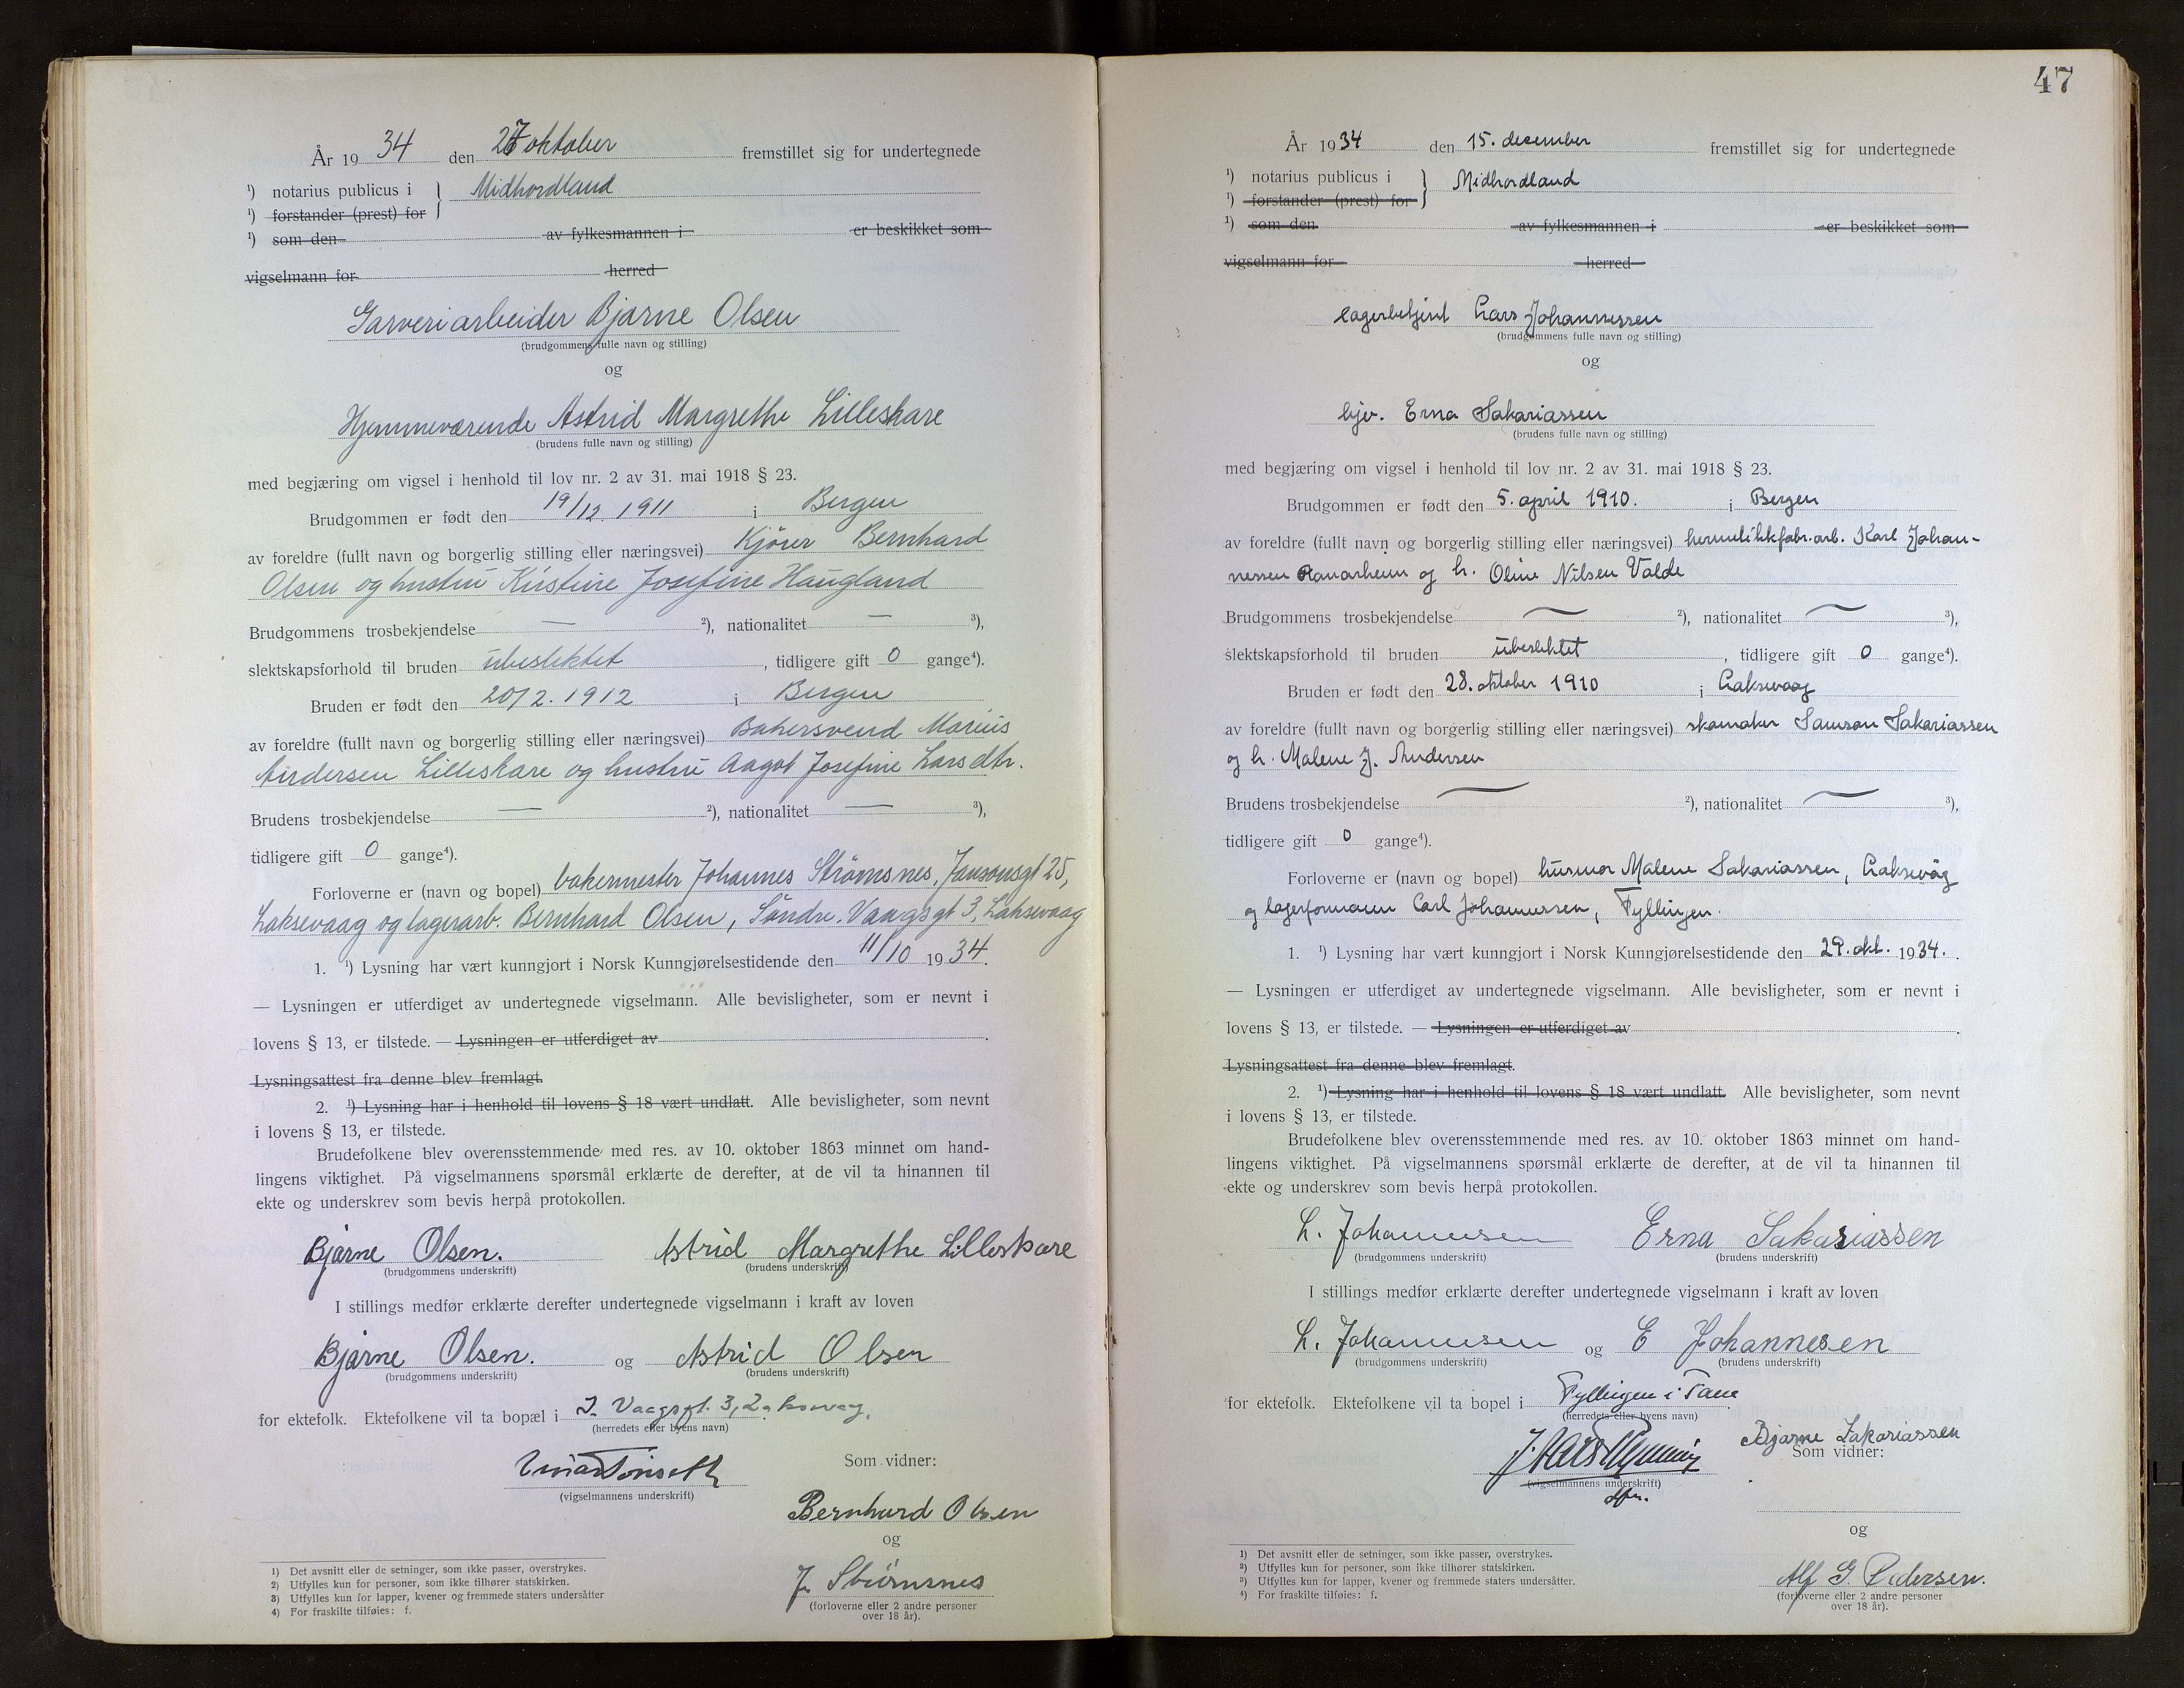 År 1934 den 27 oktober fremstillet sig for undertegnede
¹) notarius publicus i } Midhordland
¹) forstander (prest) for
¹) som den av fylkesmannen i er beskikket som
vigselmann for herred
Garveriarbeider Bjarne Olsen
(brudgommens fulle navn og stilling)
og
Hjemmeværende Astrid Margrethe Lilleskare
(brudens fulle navn og stilling)
med begjæring om vigsel i henhold til lov nr. 2 av 31. mai 1918 § 23.
Brudgommen er født den 19/12. 1911 i Bergen
av foreldre (fullt navn og borgerlig stilling eller næringsvei) Kjører Bernhard
Olsen og hustru Kristine Josefine Haugland
Brudgommens trosbekjendelse — ²), nationalitet — ³),
slektskapsforhold til bruden ubeslektet, tidligere gift 0 gange⁴).
Bruden er født den 20/2. 1912 i Bergen
av foreldre (fullt navn og borgerlig stilling eller næringsvei) Bakersvend Marius
Andersen Lilleskare og hustru Aagot Josefine Larsdtr.
Brudens trosbekjendelse — ²), nationalitet — ³),
tidligere gift 0 gange⁴).
Forloverne er (navn og bopel) bakermester Johannes Strømsnes, Jansonsgt 25,
Laksevaag og lagerarb. Bernhard Olsen, Søndre. Vaagsgt 3, Laksevaag
1. ¹) Lysning har vært kunngjort i Norsk Kunngjørelsestidende den 11/10 1934.
— Lysningen er utferdiget av undertegnede vigselmann. Alle bevisligheter, som er nevnt i
lovens § 13, er tilstede. — Lysningen er utferdiget av
Lysningsattest fra denne blev fremlagt.
2. ¹) Lysning har i henhold til lovens § 18 vært undlatt. Alle bevisligheter, som nevnt
i lovens § 13, er tilstede.
Brudefolkene blev overensstemmende med res. av 10. oktober 1863 minnet om hand-
lingens viktighet. På vigselmannens spørsmål erklærte de derefter, at de vil ta hinannen til
ekte og underskrev som bevis herpå protokollen.
Bjarne Olsen. Astrid Margrethe Lilleskare
(brudgommens underskrift) (brudens underskrift)
I stillings medfør erklærte derefter undertegnede vigselmann i kraft av loven
Bjarne Olsen. og Astrid Olsen
(brudgommens underskrift) (brudens underskrift)
for ektefolk. Ektefolkene vil ta bopæl i S. Vaagsgt. 3, Laksevag.
(herredets eller byens navn)
Som vidner:
(vigselmannens underskrift)
Bernhard Olsen
og
J. Strømsnes
(forloverne eller 2 andre personer
over 18 år).
1) Det avsnitt eller de setninger, som ikke passer, overstrykes.
2) Utfylles kun for personer, som ikke tilhører statskirken.
3) Utfylles kun for lapper, kvener og fremmede staters undersåtter
4) For fraskilte tilføies: f.
47
År 1934 den 15. december fremstillet sig for undertegnede
¹) notarius publicus i } Midhordland
¹) forstander (prest) for
¹) som den av fylkesmannen i er beskikket som
vigselmann for herred
lagerbetjent Lars Johannessen
(brudgommens fulle navn og stilling)
og
hjv. Erna Sakariassen
(brudens fulle navn og stilling)
med begjæring om vigsel i henhold til lov nr. 2 av 31. mai 1918 § 23.
Brudgommen er født den 5. april 1910. i Bergen
av foreldre (fullt navn og borgerlig stilling eller næringsvei) hermetikkfabr.arb. Karl Johan-
nessen og h. Oline Nilsen Valde
Brudgommens trosbekjendelse — ²), nationalitet — ³),
slektskapsforhold til bruden ubeslektet, tidligere gift 0 gange⁴).
Bruden er født den 28. oktober 1910 i Laksevaag
av foreldre (fullt navn og borgerlig stilling eller næringsvei) skomaker Samson Sakariassen
og h. Malene J. Andersen
Brudens trosbekjendelse — ²), nationalitet — ³),
tidligere gift 0 gange⁴).
Forloverne er (navn og bopel) husmor Malene Sakariassen, Laksevåg
og lagerformann Carl Johannessen, Fyllingen.
1. ¹) Lysning har vært kunngjort i Norsk Kunngjørelsestidende den 29. okt. 1934.
— Lysningen er utferdiget av undertegnede vigselmann. Alle bevisligheter, som er nevnt i
lovens § 13, er tilstede. — Lysningen er utferdiget av
Lysningsattest fra denne blev fremlagt.
2. ¹) Lysning har i henhold til lovens § 18 vært undlatt. Alle bevisligheter, som nevnt
i lovens § 13, er tilstede.
Brudefolkene blev overensstemmende med res. av 10. oktober 1863 minnet om hand-
lingens viktighet. På vigselmannens spørsmål erklærte de derefter, at de vil ta hinannen til
ekte og underskrev som bevis herpå protokollen.
L. Johannessen Erna Sakariassen
(brudgommens underskrift) (brudens underskrift)
I stillings medfør erklærte derefter undertegnede vigselmann i kraft av loven
L. Johannessen og E Johannesen
(brudgommens underskrift) (brudens underskrift)
for ektefolk. Ektefolkene vil ta bopel i Fyllingen i Fane
(herredets eller byens navn)
Bjarne Zakariassen
Som vidner:
(vigselmannens underskrift)
og
Alf G. Pedersen.
(forloverne eller 2 andre personer
over 18 år).
¹) Det avsnitt eller de setninger, som ikke passer, overstrykes.
²) Utfylles kun for personer, som ikke tilhører statskirken.
³) Utfylles kun for lapper, kvener og fremmede staters undersåtter.
⁴) For fraskilte tilføies: f.